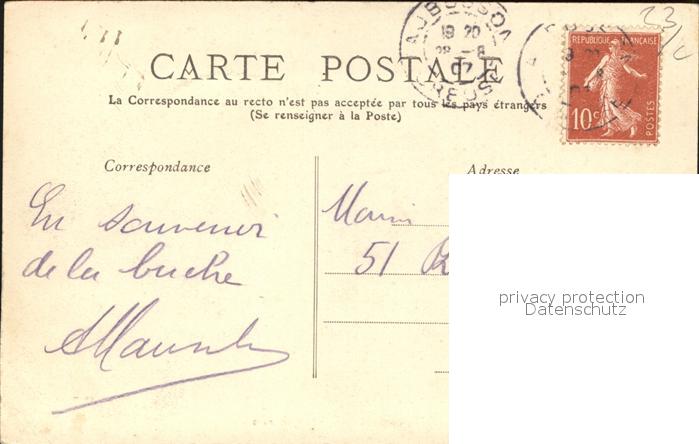 AUBUSSON
19 20
28 - 8
07
CREUSE
23/
REPUBLIQUE FRANÇAISE
10 c
POSTES
CARTE POSTALE
La Correspondance au recto n'est pas acceptée par tous les pays étrangers
(Se renseigner à la Poste)
Correspondance
Adresse
En souvenir
de la buche
51
privacy protection
Datenschutz